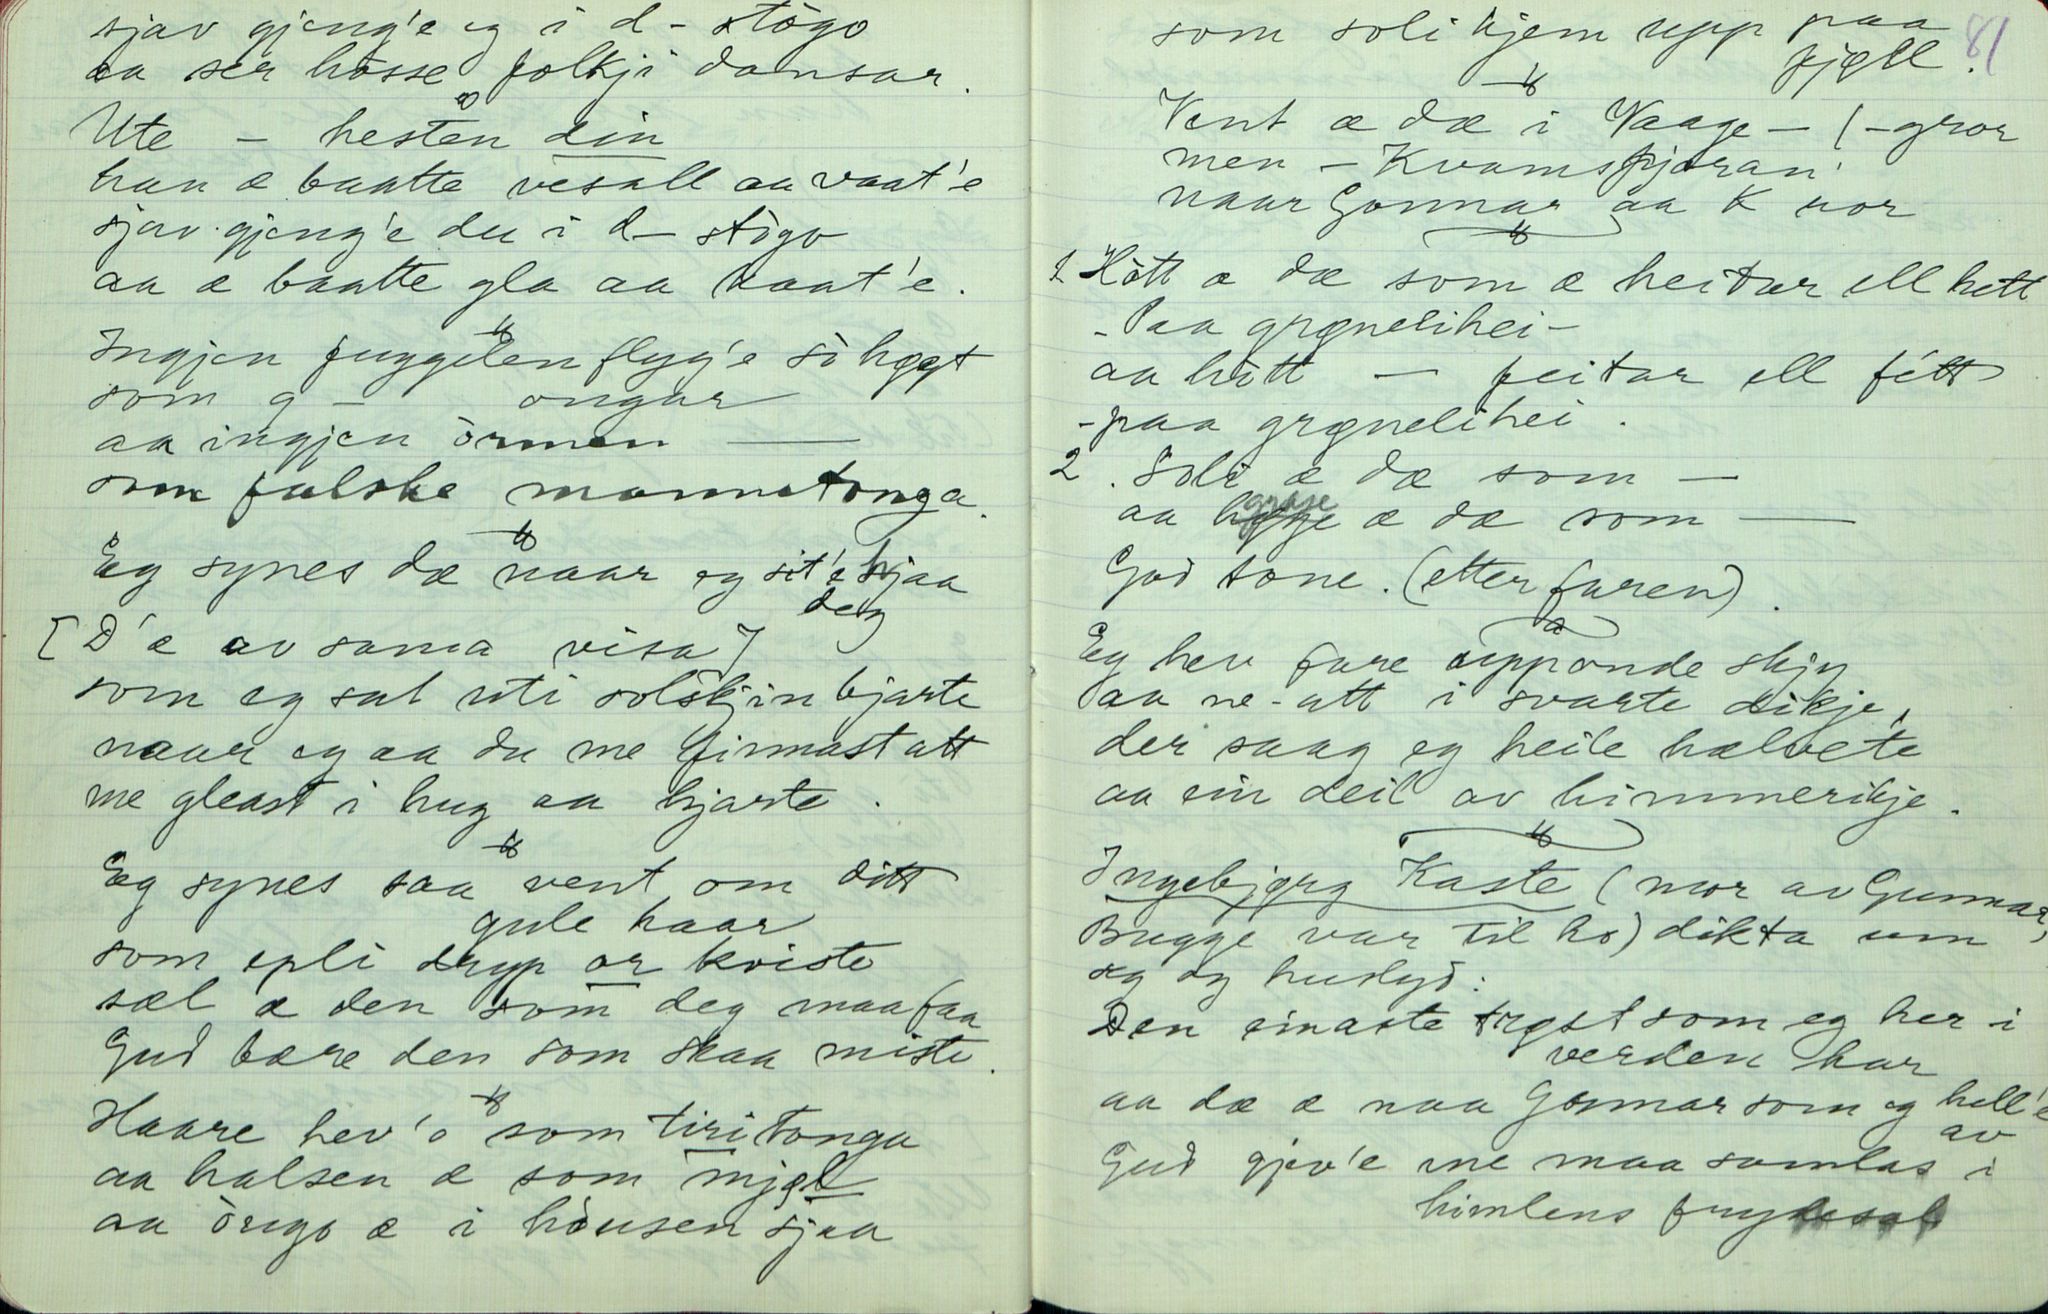 sjav gjeng'e eg i d- stògo
aa ser hòsse folkji dansar.
Ute - hesten din
han æ baatte vesall aa vaat'e
sjav gjeng'e du i d- stògo
aa æ baatte gla aa kaat'e.
Ingjen fuggelen flyg'e sò høgt
som g - ongar
aa ingjen òrmen —
som falske mannetonga.
Eg synes dæ naar eg sit'e hjaa
deg
[D'æ av sama visa]
som eg sat uti solskjin bjarte
naar eg aa du me finnast att
me gleast i hug aa hjarte.
Eg synes saa vent om ditt
gule haar
som epli dryp or kviste
sæl æ den som deg maa faa
Gud bære den som skaa miste.
Haare hev'o som tiritonga
aa halsen æ som mjøll
aa òrigo æ i hòusen sjaa
81
som soli kjem upp paa
fjøll.
Vent æ dæ i Vaage - (-gror
men - Kvamsfjøran'
naar Gonnar aa K ror
1 Hòtt æ dæ som æ heitar ell hett
- Paa grønelihei -
aa hòtt — feitar ell fétt
- paa grønelihei.
2. Soli æ dæ som —
aa grase æ dæ som —
God tone. (etter faren).
Eg hev fare upponde skjy
aa ne-att i svarte dikje,
der saag eg heile hælvete
aa ein deil av himmerikje.
Ingebjørg Kaste (mor av Gunnar
Bugge var til ho) dikta um
seg og huslyd:
Den einaste trøst som eg her i
verden har
aa dæ æ naa Gonnar som eg hell'e
av
Gud gjev'e me maa samlas i
himlens frydesal